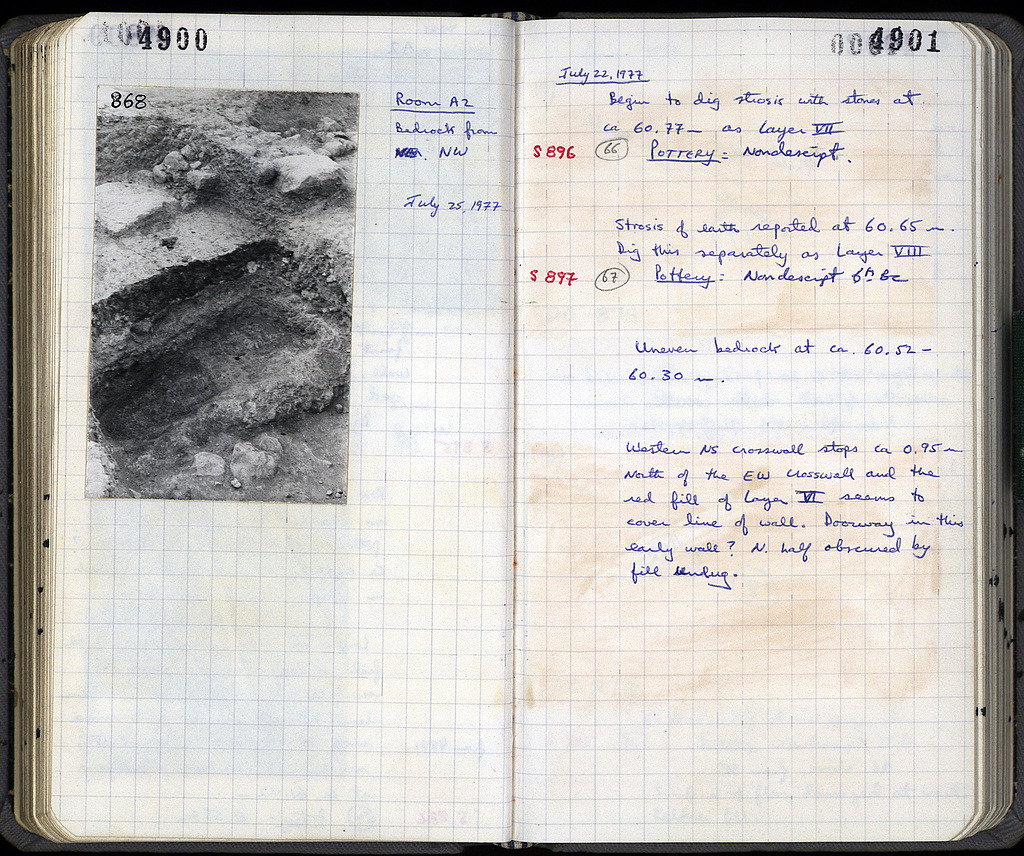 4900
868
Room A2
Bedrock from
NW
July 25, 1977
4901
July 22, 1977
Begin to dig strosis with stones at
ca 60.77 m as Layer VII
S 896 66 POTTERY = Nondescript.
Strosis of earth reported at 60.65 m.
Dig this separately as Layer VIII
S 897 67 Pottery = Nondescript 6th BC
Uneven bedrock at ca. 60.52 -
60.30 m.
Western NS crosswall stops ca 0.95 m
North of the EW crosswall and the
red fill of Layer VI seems to
cover line of wall. Doorway in this
early wall? N. half obscured by
fill undug.